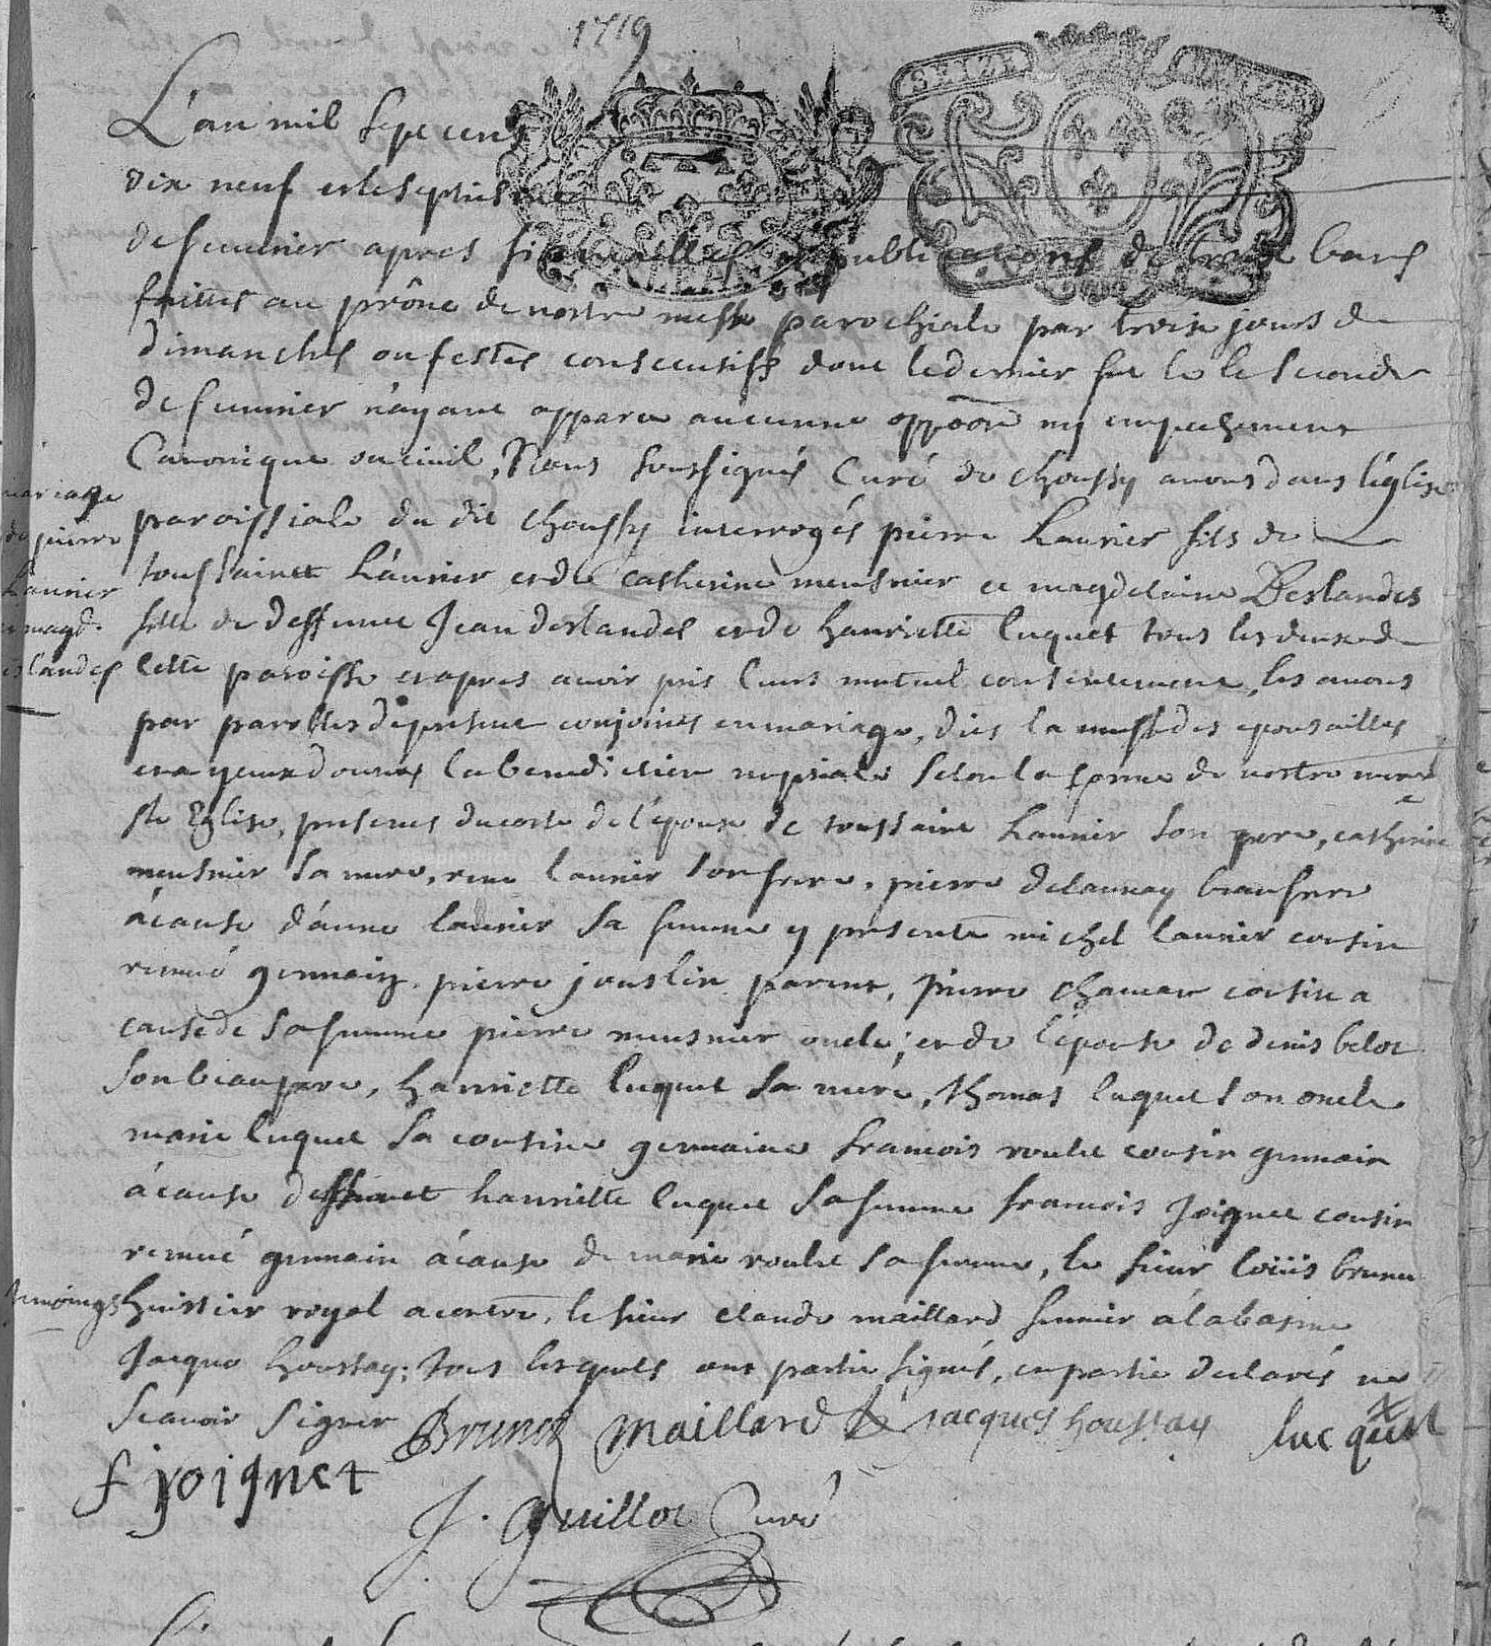 1719
L'an mil sept cent
dix neuf et le septiesme
de feuvrier apres fiancailles et publications de trois bans
faittes au prône de nostre messe parochiale par trois jours de
dimanches ou festes consecutifs dont le dernier fut le second
de feuvrier n'ayant apparu aucunne oppoon ny empeschement
Canonique ou civil, Nous soussignés Curé de Choussy avons dans l'église
paroissiale du dit Choussy interrogés pierre Launier fils de
toussainct Launier et de Catherine meusnier et magdelaine Deslandes
fille de deffunct Jean deslandes et de hanriette luquet tous les deux de
cette paroisse et apres avoir pris leurs mutuel consentement, les avons
par parolles de present conjoints en mariage, dies la messe des epousailles
et a yceux donnes la benediction nuptiale selon la forme de nostre mere
Ste Eglise, presences du coste de l'époux de toussaint Launier son pere, catherine
meusnier sa mere, rene launier son frere, pierre delaunay beaufrere
àcause d'anne launier sa femme y presente michel launier cousin
remué germain, pierre jouslin parent, pierre cousin a
cause de sa femme pierre meusnier oncle; et de l'epouse de denis belot
son beaupere, hanriette luquet sa mere, thomas luquet son oncle
marie luquet sa cousine germaine francois roulet cousin germain
àcause deffunct hanriette luquet sa femme francois Joignet cousin
remué germain àcause de marie roulet sa femme, le sieur loüis brunet
huissier royal a le sieur claude maillard fermier à
Jacque houssay; tous lesquels ont partie signés, en partie declarés ne
scavoir signer
Brunet maillard jacques houssay lucquet
f joignet
J. Guillot Curé
mariage
de pierre
Launier
et magd.
eslandes
temoings